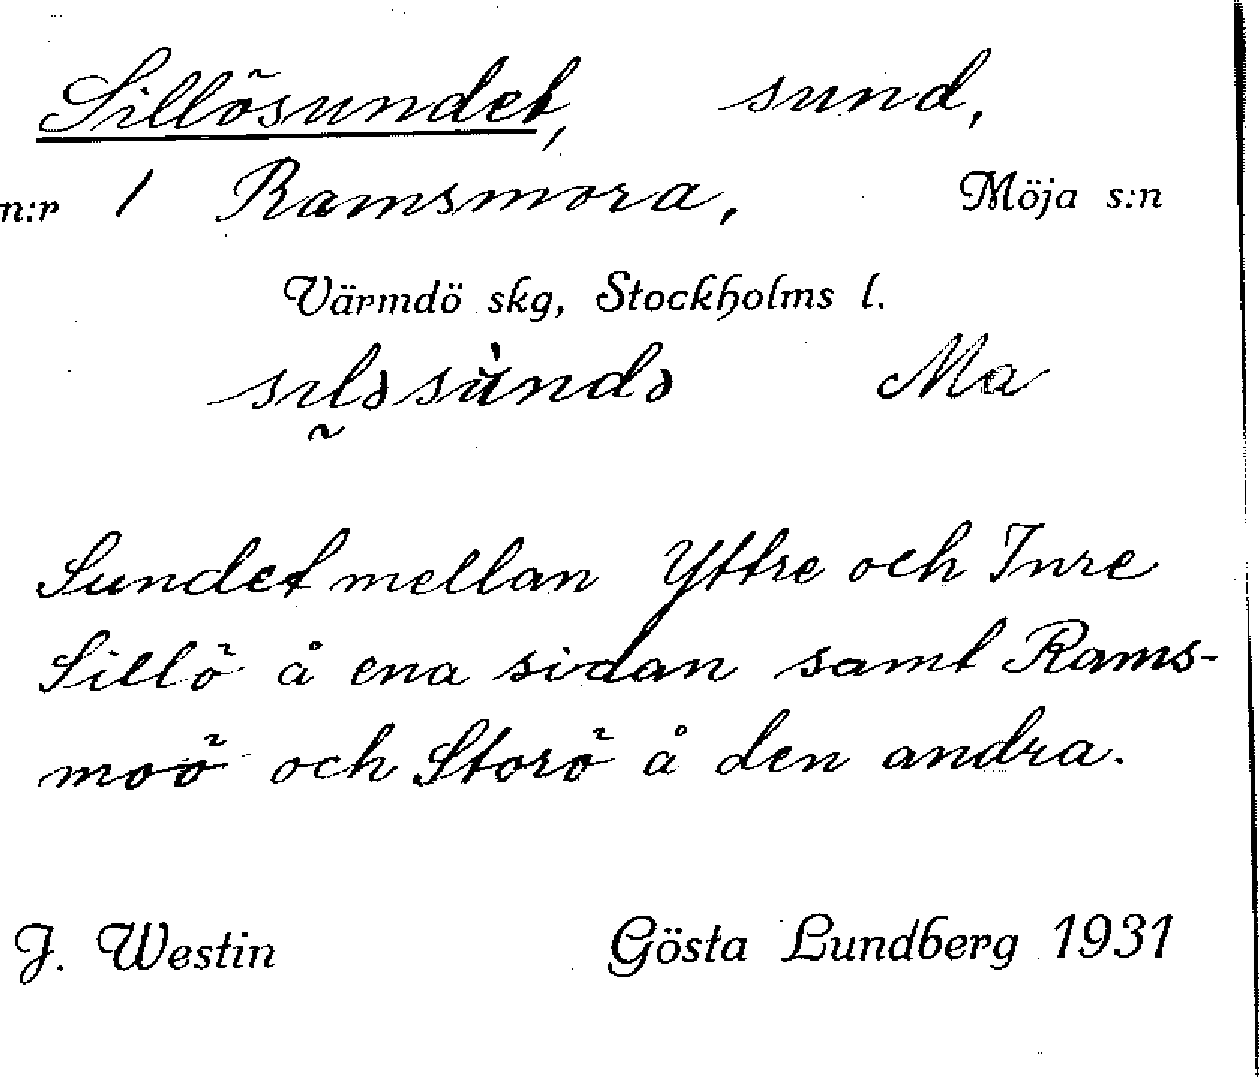 Sillösundet, sund,
n:r 1 Ramsmora, Möja s:n
Värmdö skg, Stockholms l.
Ma
Sundet mellan Yttre och Inre
Sillö å ena sidan samt Rams-
moö och Storö å den andra.
J. Westin Gösta Lundberg 1931